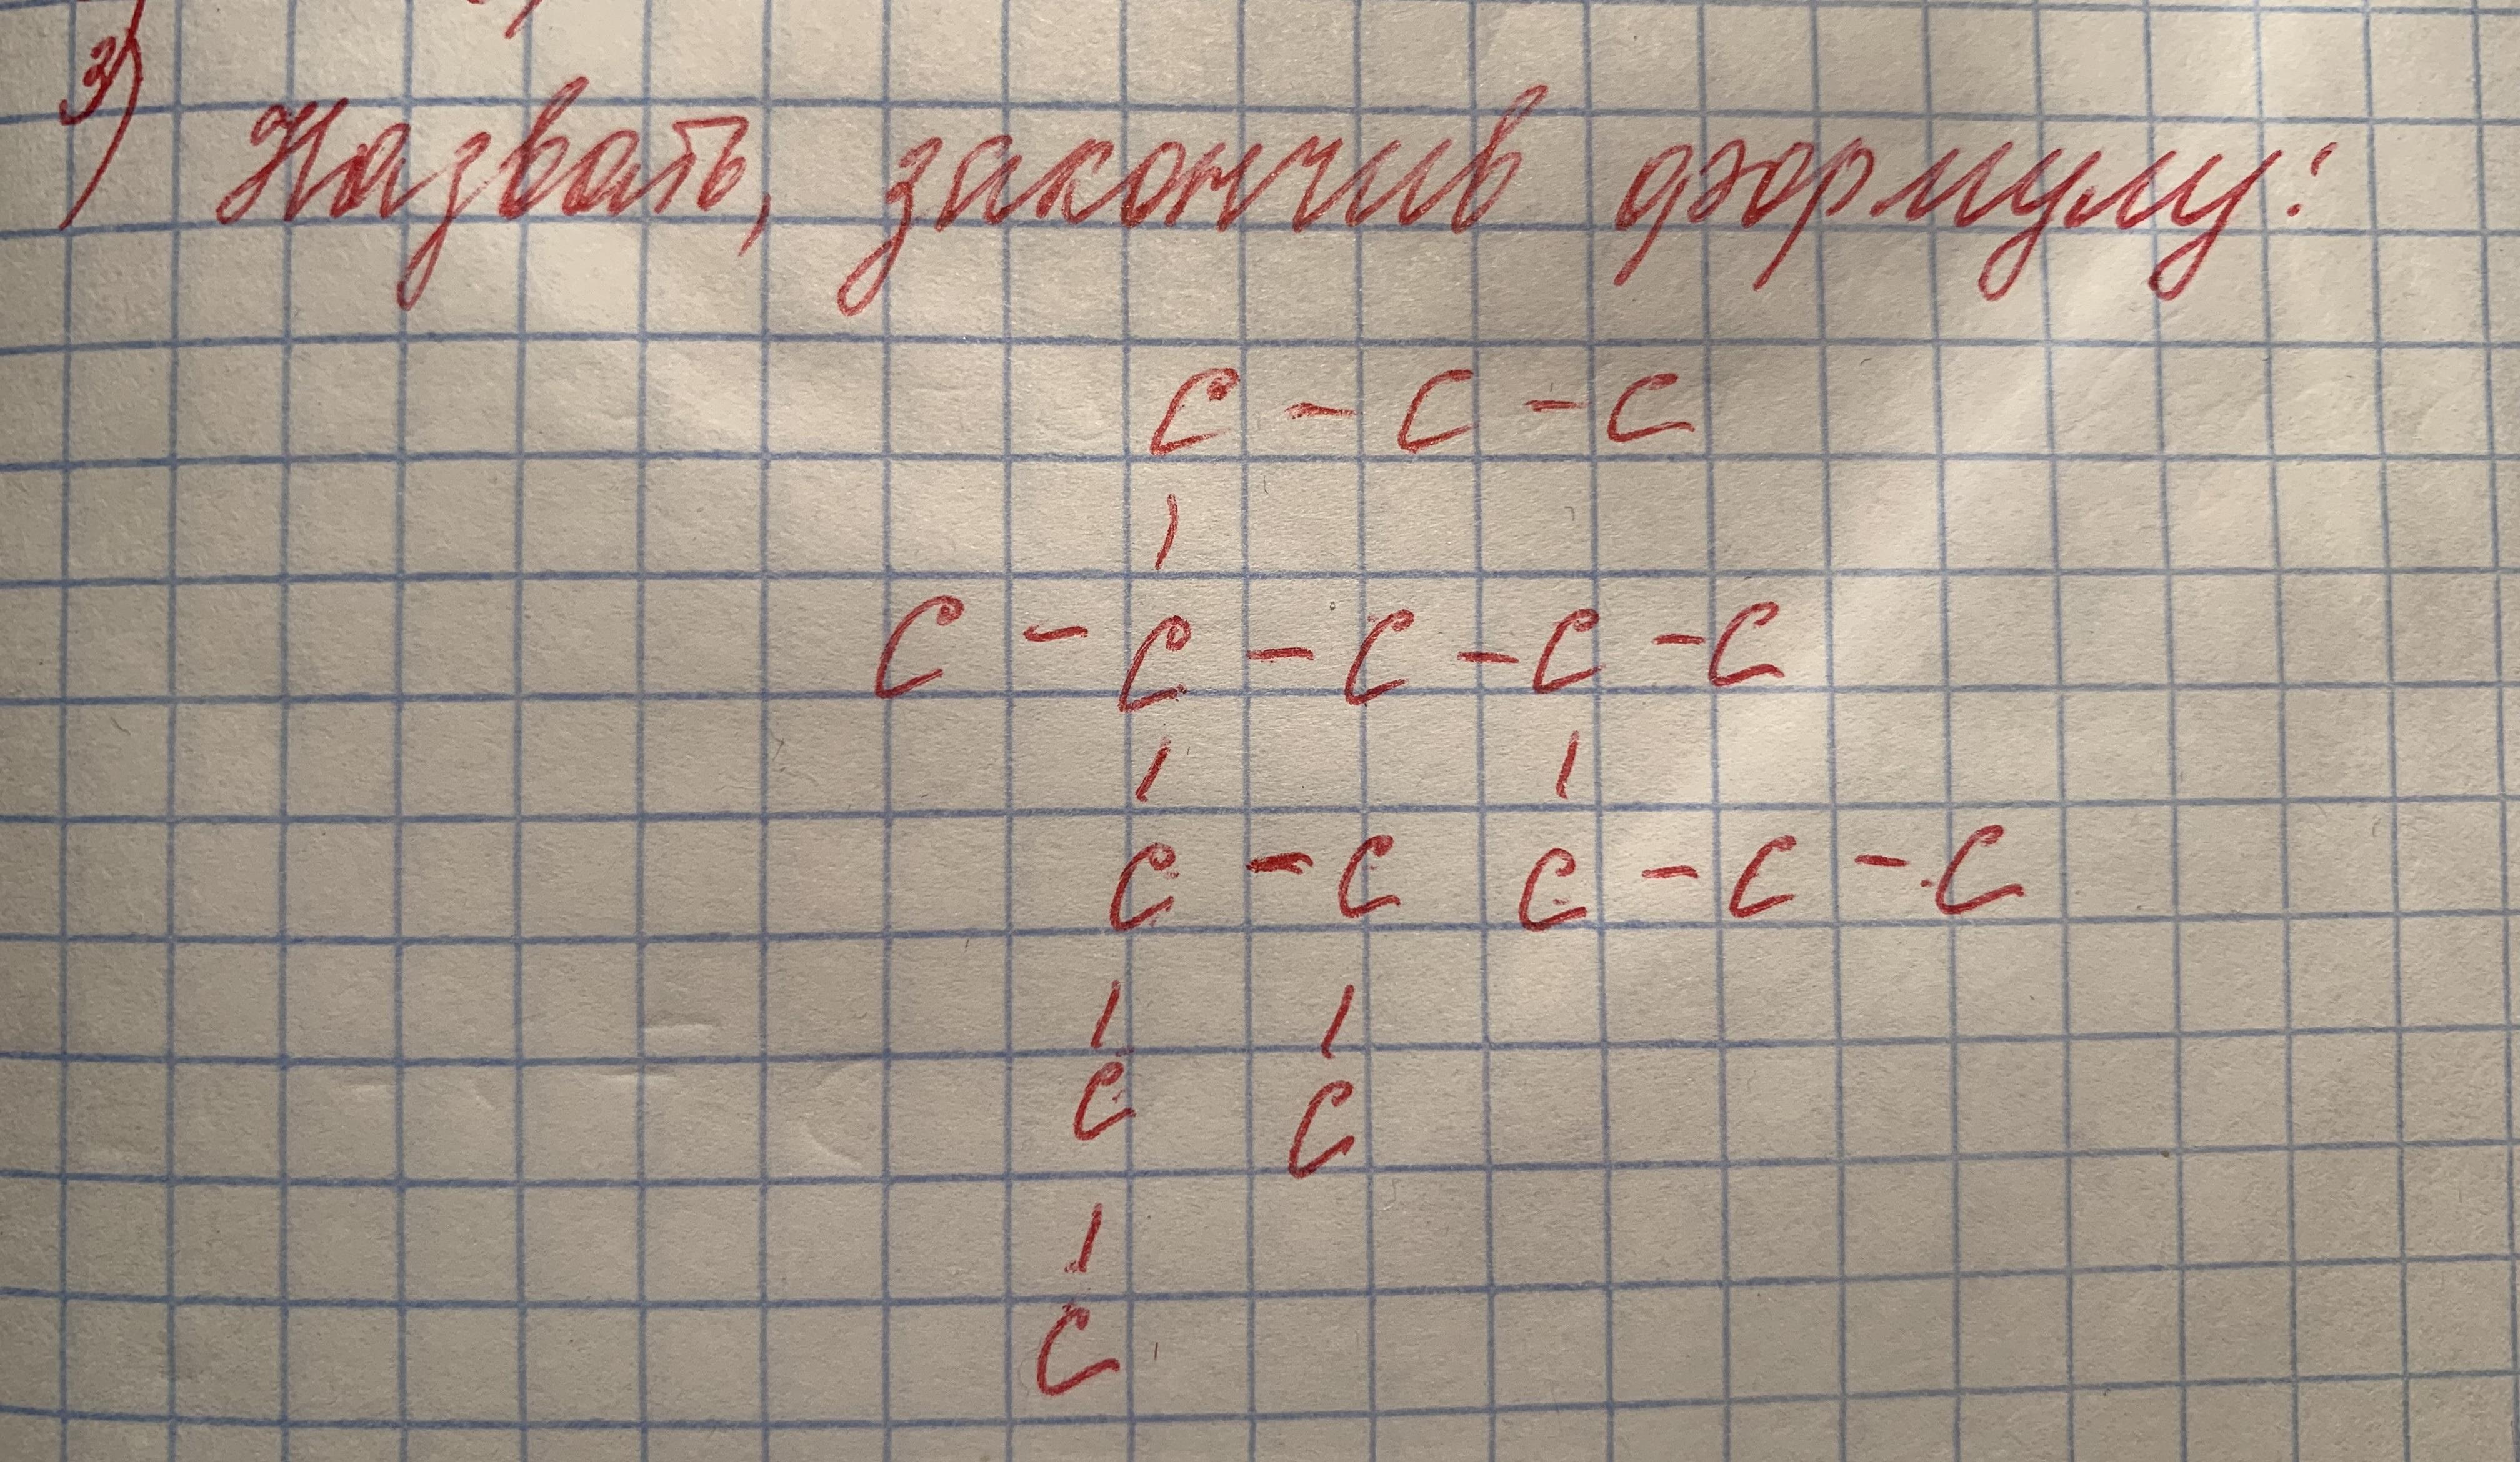 3) Назвать, закончив формулу:
C - C - C
| 
C - C - C - C - C
| |
C - C C - C - C
| |
C C
|
C